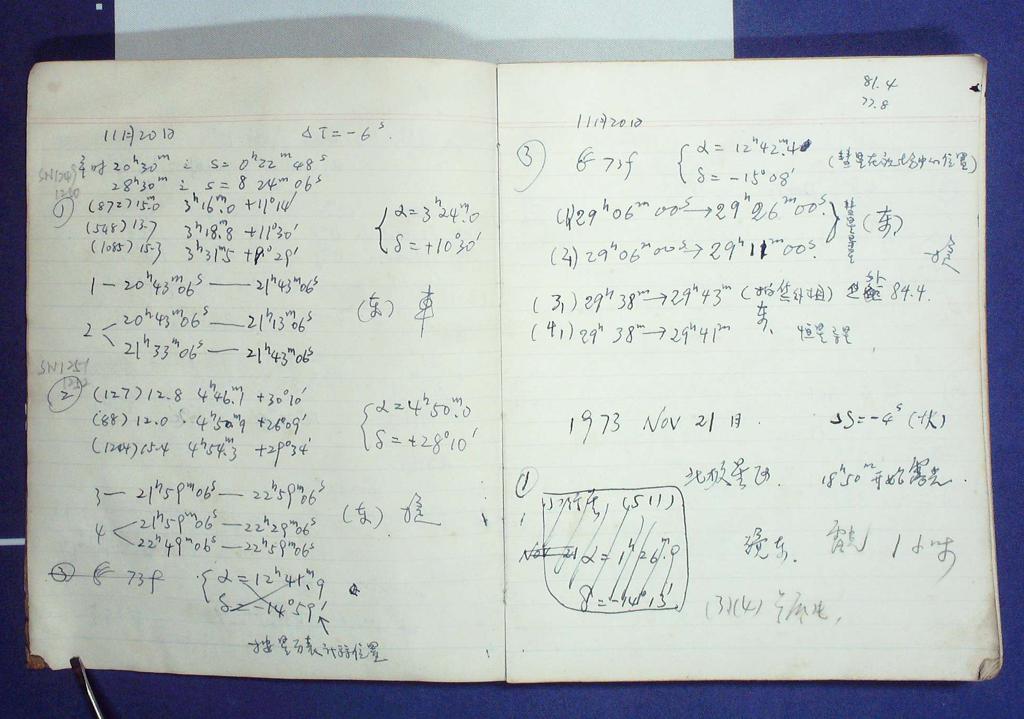 11月20日 ΔT=-6ˢ.
20ʰ30ᵐ S=0ʰ22ᵐ48ˢ
28ʰ30ᵐ S=8 24ᵐ06ˢ
SN1249
1250
①
(872)15.0 3ʰ16ᵐ.0 +11°14'
(548)13.7 3ʰ18ᵐ.8 +11°30'
(1085)15.3 3ʰ31ᵐ.5 +9°29'
α=3ʰ24ᵐ.0
δ=+10°30'
1—20ʰ43ᵐ06ˢ——21ʰ43ᵐ06ˢ
2 20ʰ43ᵐ06ˢ——21ʰ13ᵐ06ˢ
21ʰ33ᵐ06ˢ——21ʰ43ᵐ06ˢ
(东)
SN1251
1252
② (127)12.8 4ʰ46ᵐ.7 +30°10'
(88)12.0 4ʰ50ᵐ.9 +26°09'
(1204)15.4 4ʰ54ᵐ.3 +29°34'
α=4ʰ50ᵐ.0
δ=+28°10'
3—21ʰ59ᵐ06ˢ——22ʰ59ᵐ06ˢ
4 21ʰ59ᵐ06ˢ——22ʰ29ᵐ06ˢ
22ʰ49ᵐ06ˢ——22ʰ59ᵐ06ˢ
(东)
③ 73f α=12ʰ41ᵐ.9
δ=-14°59'
81.4
77.8
11月20日
③ 73f α=12ʰ42ᵐ.4
δ=-15°08'
(1,)29ʰ06ᵐ00ˢ→29ʰ26ᵐ00ˢ.
(2,)29ʰ06ᵐ00ˢ→29ʰ11ᵐ00ˢ.
彗星导星 (东)
(3,)29ʰ38ᵐ→29ʰ43ᵐ 84.4.
东,
(4,)29ʰ38ᵐ→29ʰ41ᵐ 恒星导星
1973 Nov 21日. ΔS=-4ˢ(快)
北极星区. 18ʰ50ᵐ开始露光.
①
(511)
Nov 21 α=1ʰ26ᵐ.9
δ=-14°13'
镜东. 露光 1小时
(3)(4)